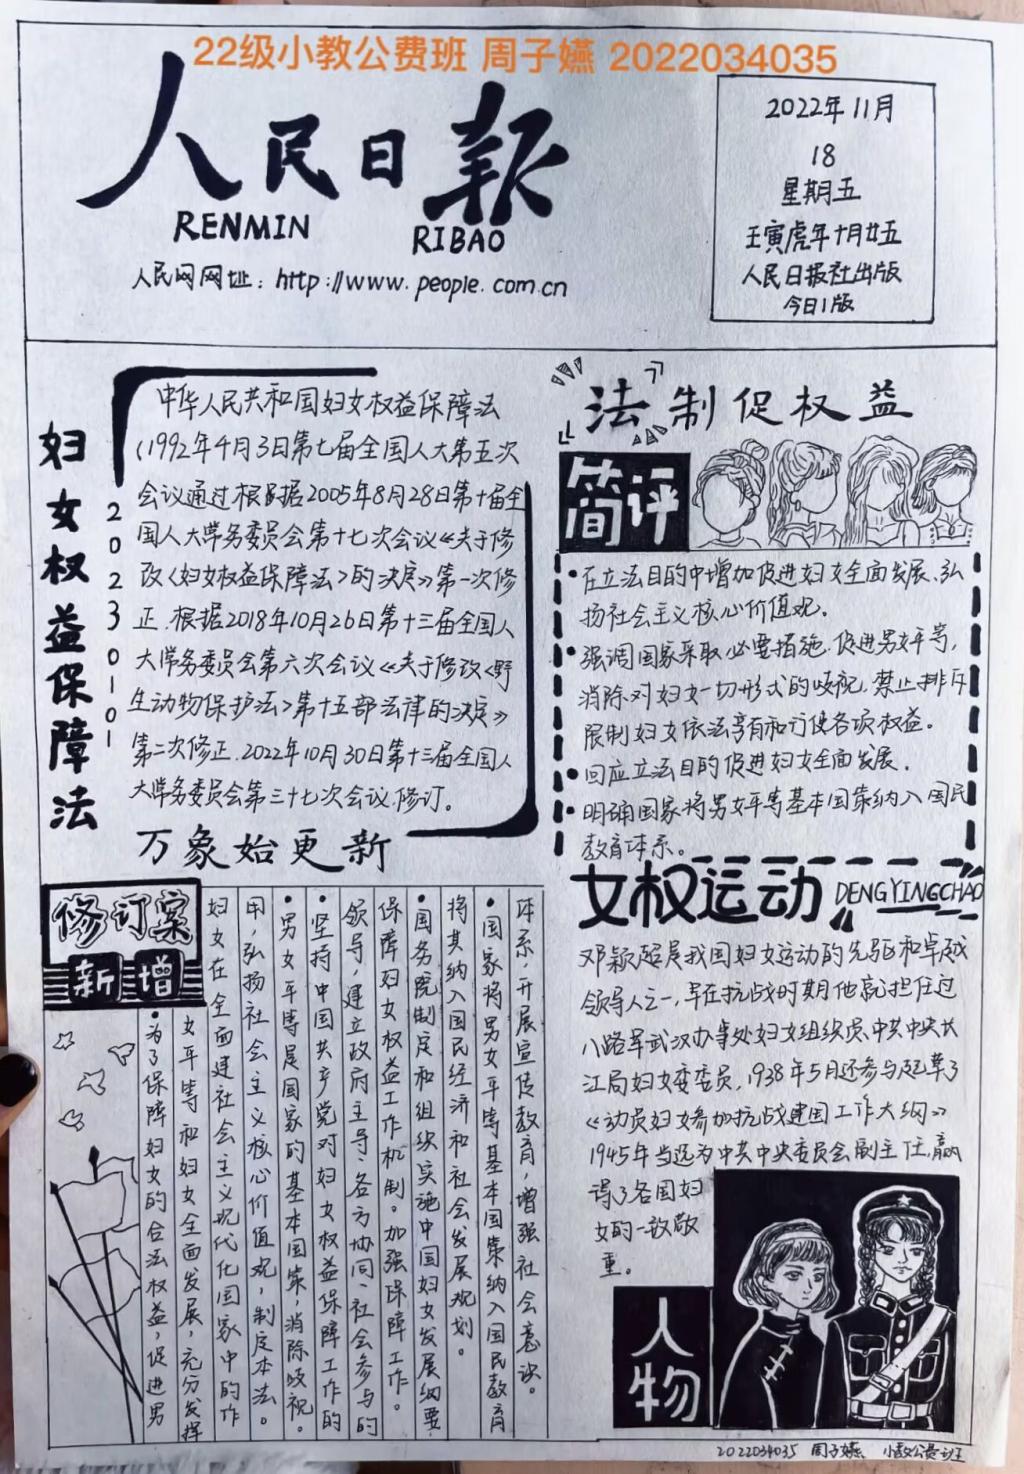 22级小教公费班 周子嬿 2022034035
人民日报
RENMIN RIBAO
人民网网址：http://www.people.com.cn
2022年11月
18
星期五
壬寅虎年十月廿五
人民日报社出版
今日1版
妇女权益保障法
20230101
中华人民共和国妇女权益保障法
(1992年4月3日第七届全国人大第五次
会议通过根据2005年8月28日第十届全
国人大常务委员会第十七次会议《关于修
改〈妇女权益保障法〉的决定》第一次修
正.根据2018年10月26日第十三届全国人
大常务委员会第六次会议《关于修改〈野
生动物保护法〉第十五部法律的决定》
第二次修正.2022年10月30日第十三届全国人
大常务委员会第三十七次会议修订。
万象始更新
法制促权益
简评
·在立法目的中增加促进妇女全面发展、弘
扬社会主义核心价值观。
·强调国家采取必要措施.促进男女平等，
消除对妇女一切形式的歧视，禁止排斥
限制妇女依法享有和行使各项权益。
·回应立法目的促进妇女全面发展.
·明确国家将男女平等基本国策纳入国民
教育体系。
修订案
新增
·为了保障妇女的合法权益，促进男
女平等和妇女全面发展，充分发挥
妇女在全面建社会主义现代化国家中的作
用，弘扬社会主义核心价值观，制定本法。
·男女平等是国家的基本国策，消除歧视。
·坚持中国共产党对妇女权益保障工作的
领导，建立政府主导、各方协同、社会参与的
保障妇女权益工作机制。加强保障工作。
·国务院制定和组织实施中国妇女发展纲要
将其纳入国民经济和社会发展规划。
·国家将男女平等基本国策纳入国民教育
体系，开展宣传教育，增强社会意识。
女权运动
DENGYINGCHAO
邓颖超是我国妇女运动的先驱和卓越
领导人之一，早在抗战时期他就担任过
八路军武汉办事处妇女组织员、中共中央长
江局妇女委委员，1938年5月还参与起草了
《动员妇女参加抗战建国工作大纲》
1945年当选为中共中央委员会副主任，赢
得了各国妇
女的一致敬
重。
人物
2022034035 周子嬿 小教公费班